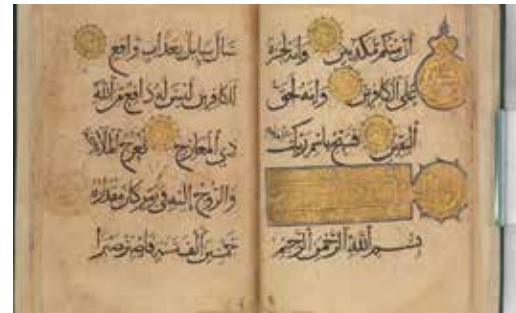 أن منكم مكذبين وإنه لحسرة
على الكافرين وإنه لحق
اليقين فسبح باسم ربك العظيم
بسم الله الرحمن الرحيم
سال سايل بعذاب واقع
للكافرين ليس له دافع من الله
ذي المعارج تعرج الملائكة
والروح إليه في يوم كان مقداره
خمسين ألف سنة فاصبر صبرا